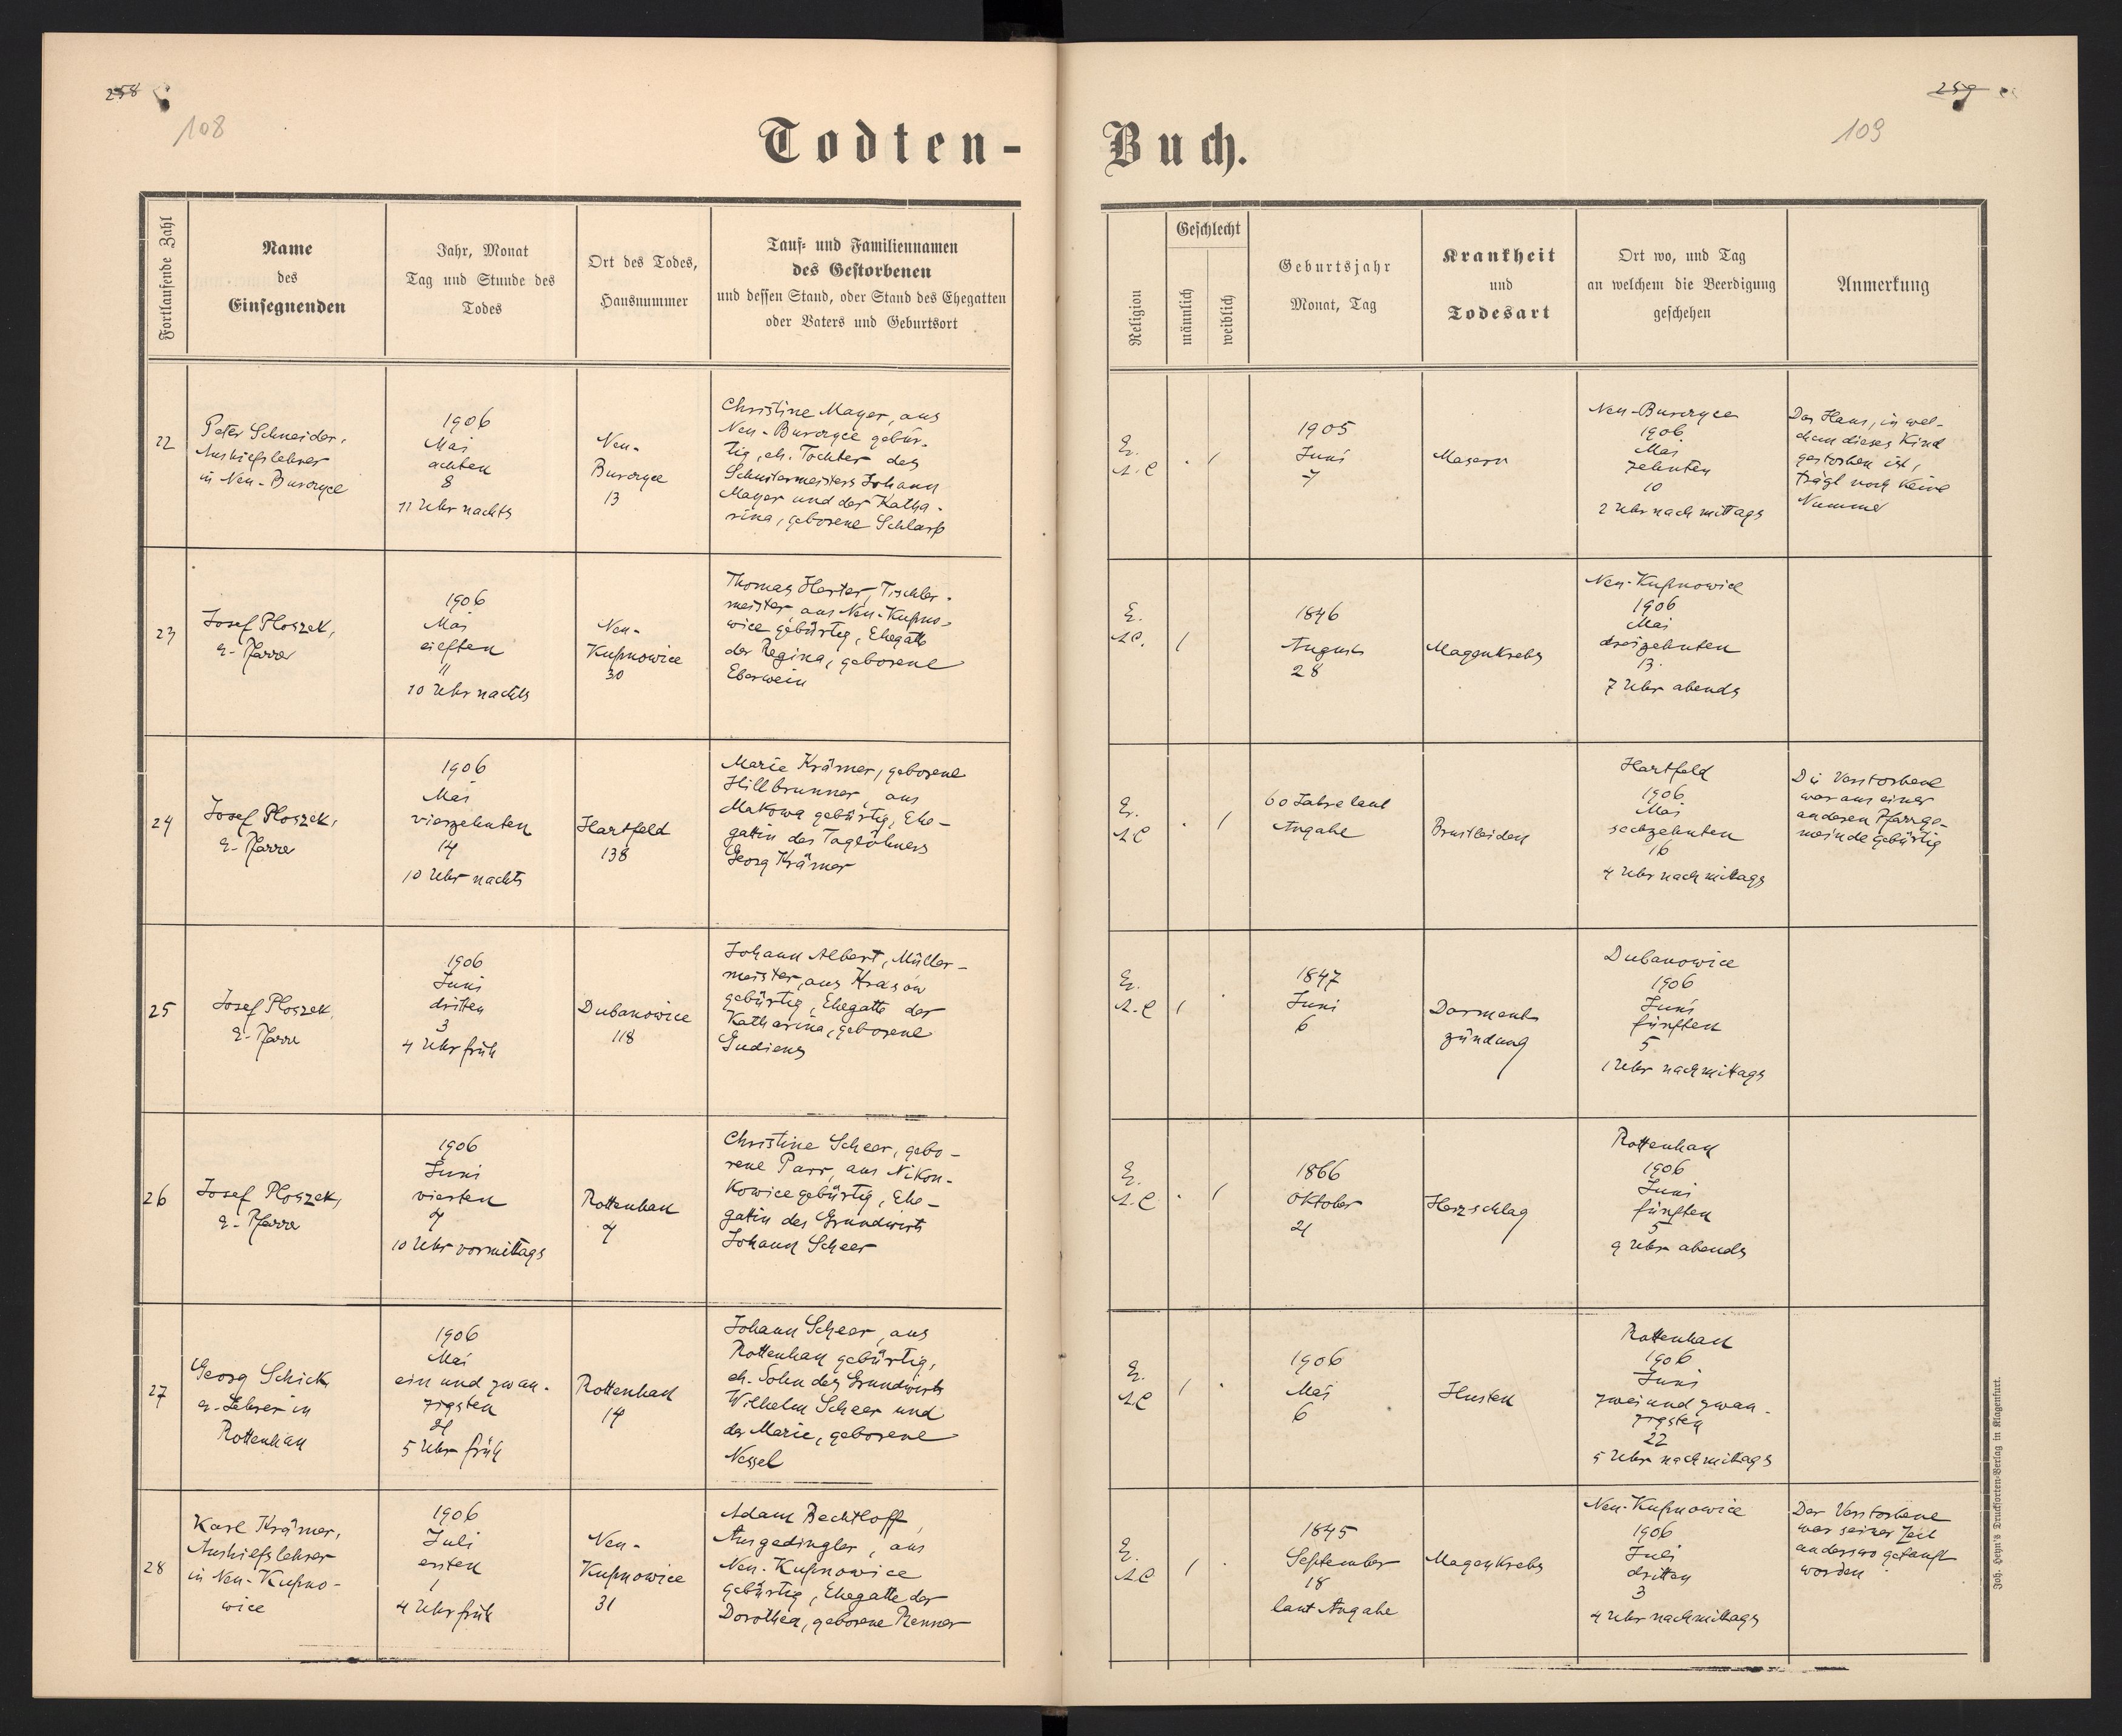 258
108
Todten-
Fortlaufende Zahl
Name
des
Einsegnenden
Jahr, Monat
Tag und Stunde des
Todes
Ort des Todes,
Hausnummer
Tauf- und Familiennamen
des Gestorbenen
und dessen Stand, oder Stand des Ehegatten
oder Vaters und Geburtsort
22
Peter Schneider,
Aushilfslehrer
in Neu-Burczyce
1906
Mai
achten
8
11 Uhr nachts
Neu-
Burczyce
13
Christine Mayer, aus
Neu-Burczyce gebür-
tig, eh. Tochter des
Schustermeisters Johann
Mayer und der Katha-
rina, geborene Schlarp
23
Josef Ploszek,
e. Pfarrer
1906
Mai
eilften
11
10 Uhr nachts
Neu-
Kupnowice
30
Thomas Harter, Tischler-
meister aus Neu-Kupno-
wice gebürtig, Ehegatte
der Regina, geborene
Eberwein
24
Josef Ploszek,
e. Pfarrer
1906
Mai
vierzehnten
14
10 Uhr nachts
Hartfeld
138
Marie Krämer, geborene
Hillbrunner, aus
Makowa gebürtig, Ehe-
gattin des Taglöhners
Georg Krämer
25
Josef Ploszek,
e. Pfarrer
1906
Juni
dritten
3
4 Uhr früh
Dubanowice
118
Johann Albert, Müller-
meister, aus Krasów
gebürtig, Ehegatte der
Katharina, geborene
Gudiens
26
Josef Ploszek,
e. Pfarrer
1906
Juni
vierten
4
10 Uhr vormittags
Rottenhan
4
Christine Scheer, gebo-
rene Parr, aus Nikon-
kowice gebürtig, Ehe-
gattin des Grundwirts
Johann Scheer
27
Georg Schick,
e. Lehrer in
Rottenhan
1906
Mai
ein und zwan-
zigsten
21
5 Uhr früh
Rottenhan
14
Johann Scheer, aus
Rottenhan gebürtig,
eh. Sohn des Grundwirts
Wilhelm Scheer und
der Marie, geborene
Nessel
28
Karl Krämer,
Aushilfslehrer
in Neu-Kupno-
wice
1906
Juli
ersten
1
4 Uhr früh
Neu-
Kupnowice
31
Adam Bechtloff,
Ausgedingler, aus
Neu-Kupnowice
gebürtig, Ehegatte der
Dorothea, geborene Renner
259
109
Buch.
Religion
Geschlecht
männlich
weiblich
Geburtsjahr
Monat, Tag
Krankheit
und
Todesart
Ort wo, und Tag
an welchem die Beerdigung
geschehen
Anmerkung
E.
A.C
1905
Juni
7
Masern
Neu-Burczyce
1906
Mai
zehnten
10
2 Uhr nachmittags
Das Haus, in wel-
chem dieses Kind
gestorben ist,
trägt noch keine
Nummer
E.
A.C.
1846
August
28
Magenkrebs
Neu-Kupnowice
1906
Mai
dreizehnten
13.
7 Uhr abends
E.
A.C
60 Jahre laut
Angabe
Brustleiden
Hartfeld
1906
Mai
sechzehnten
16
4 Uhr nachmittags
Die Verstorbene
war aus einer
anderen Pfarrge-
meinde gebürtig
E.
A.C
1847
Juni
6
Darment-
zündung
Dubanowice
1906
Juni
fünften
5
1 Uhr nachmittags
E.
A.C
1866
Oktober
21
Herzschlag
Rottenhan
1906
Juni
fünften
5
9 Uhr abends
E.
A.C
1906
Mai
6
Husten
Rottenhan
1906
Juni
zwei und zwan-
zigsten
22
5 Uhr nachmittags
E.
A.C
1845
September
18
laut Angabe
Magenkrebs
Neu-Kupnowice
1906
Juli
dritten
3
4 Uhr nachmittags
Der Verstorbene
war seiner Zeit
anderswo getauft
worden
Joh. Heyn's Drucksorten-Verlag in Klagenfurt.